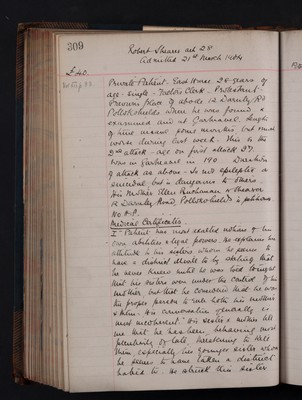 309
Robert Shearer aet 28
Admitted 21st March 1904
£40.
Private Patient. East House. 28 years of
age - Single - Factor's Clerk. Protestant.
Previous place of abode 12 Darnley Rd
Pollokshields where he was found &
examined and at Gartnavel. Length
of time insane some months but much
worse during last week. This is the
2nd attack - age on first attack 24
was in Gartnavel in 190 Duration
of attack as above - Is not epileptic or
suicidal but is dangerous to others.
His Mother Ellen or Shearer
12 Darnley Road, Pollokshields is petitioner
No H.P.
Medical Certificates.
I. Patient has most exalted notions of his
own abilities & legal powers. He explains his
attitude to his sisters whom he seems to
have a distinct dislike to by stating that
he never knew until he was told tonight
that his sisters were under the control of his
mother, but that he conceived that he was
the proper person to rule both his mother
& them. His conversation generally is
most incoherent. His sister & mother tell
me that he has been behaving most
peculiarly of late, threatening to kill
them especially his younger sister whom
he seems to have taken a distinct
hatred to. He struck this sister